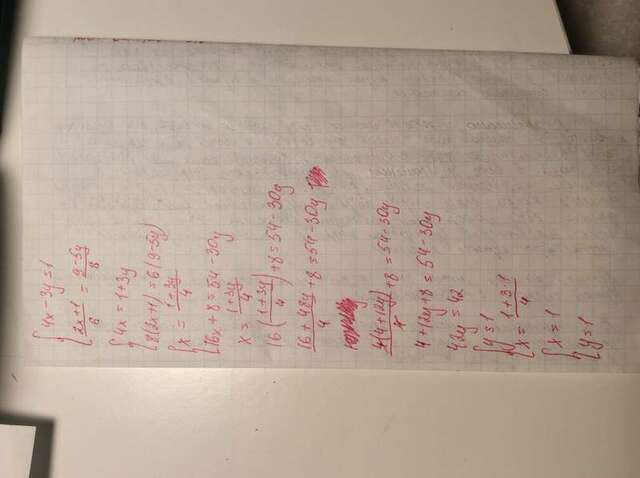 { 4x-3y=1
{ (2x+1)/6 = (9-5y)/8
{ 4x=1+3y
{ 8(2x+1)=6(9-5y)
{ x=(1+3y)/4
{ 16x+8=54-30y
x=(1+3y)/4
16((1+3y)/4)+8=54-30y
(16+48y)/4+8=54-30y
4(4+12y)/4+8=54-30y
4+12y+8=54-30y
42y=42
{ y=1
{ x=(1+3·1)/4
{ x=1
{ y=1